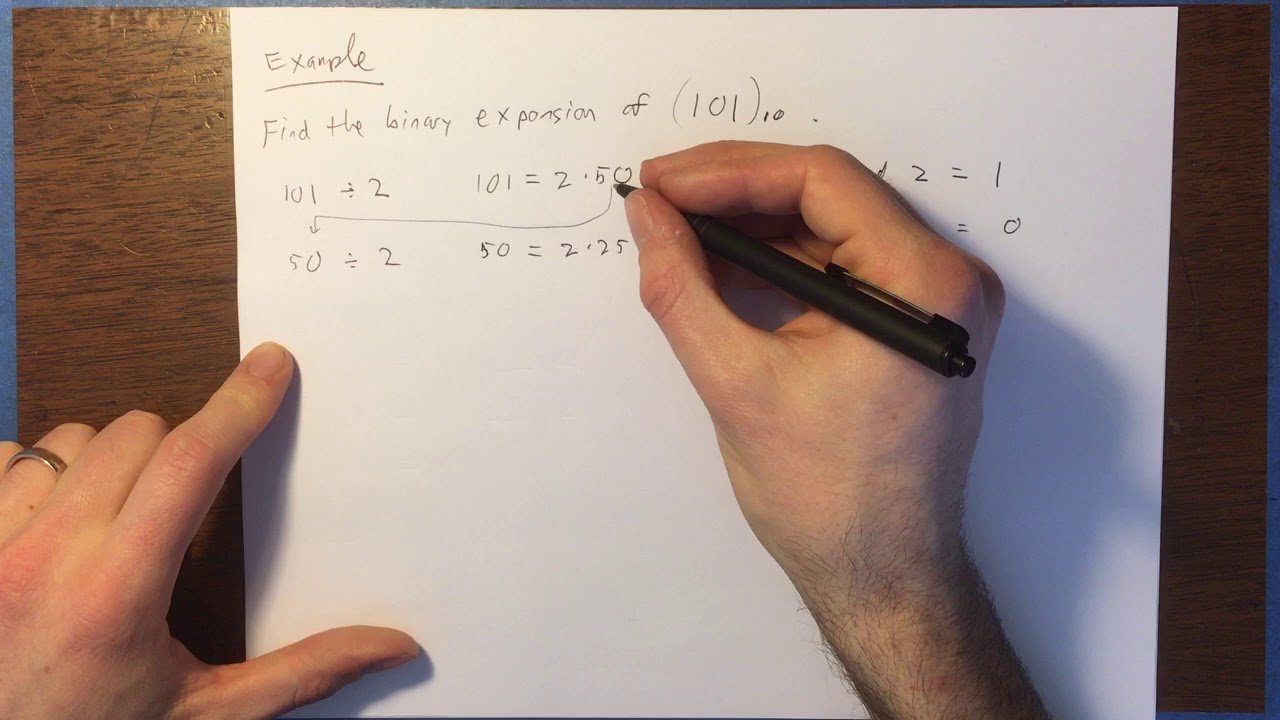 Example
Find the binary expansion of (101)₁₀ .
101 ÷ 2 101 = 2 · 50 2 = 1
50 ÷ 2 50 = 2 · 25 = 0